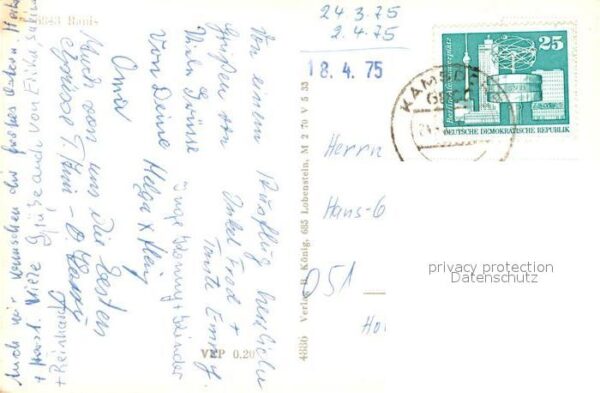 6843 Ranis
Von einem Ausflug herzliche
Grüßen von Onkel Fred +
Tante Emmy.
Viele Grüsse
von Deine Helga + Heinz
Oma
Auch von uns die besten
Grüsse T.
Auch wir wünschen dir frohes Ostern
+ Horst. Viele Grüße auch von Erika,
+ Reinhard
VEP 0.20
4830 Verlag B. König, 685 Lobenstein, M 2 70 V 5 33
24 3.75
2.4.75
18. 4. 75
KAMSDORF
25
DEUTSCHE DEMOKRATISCHE REPUBLIK
Herrn
Hans-G
051
Ho
privacy protection
Datenschutz